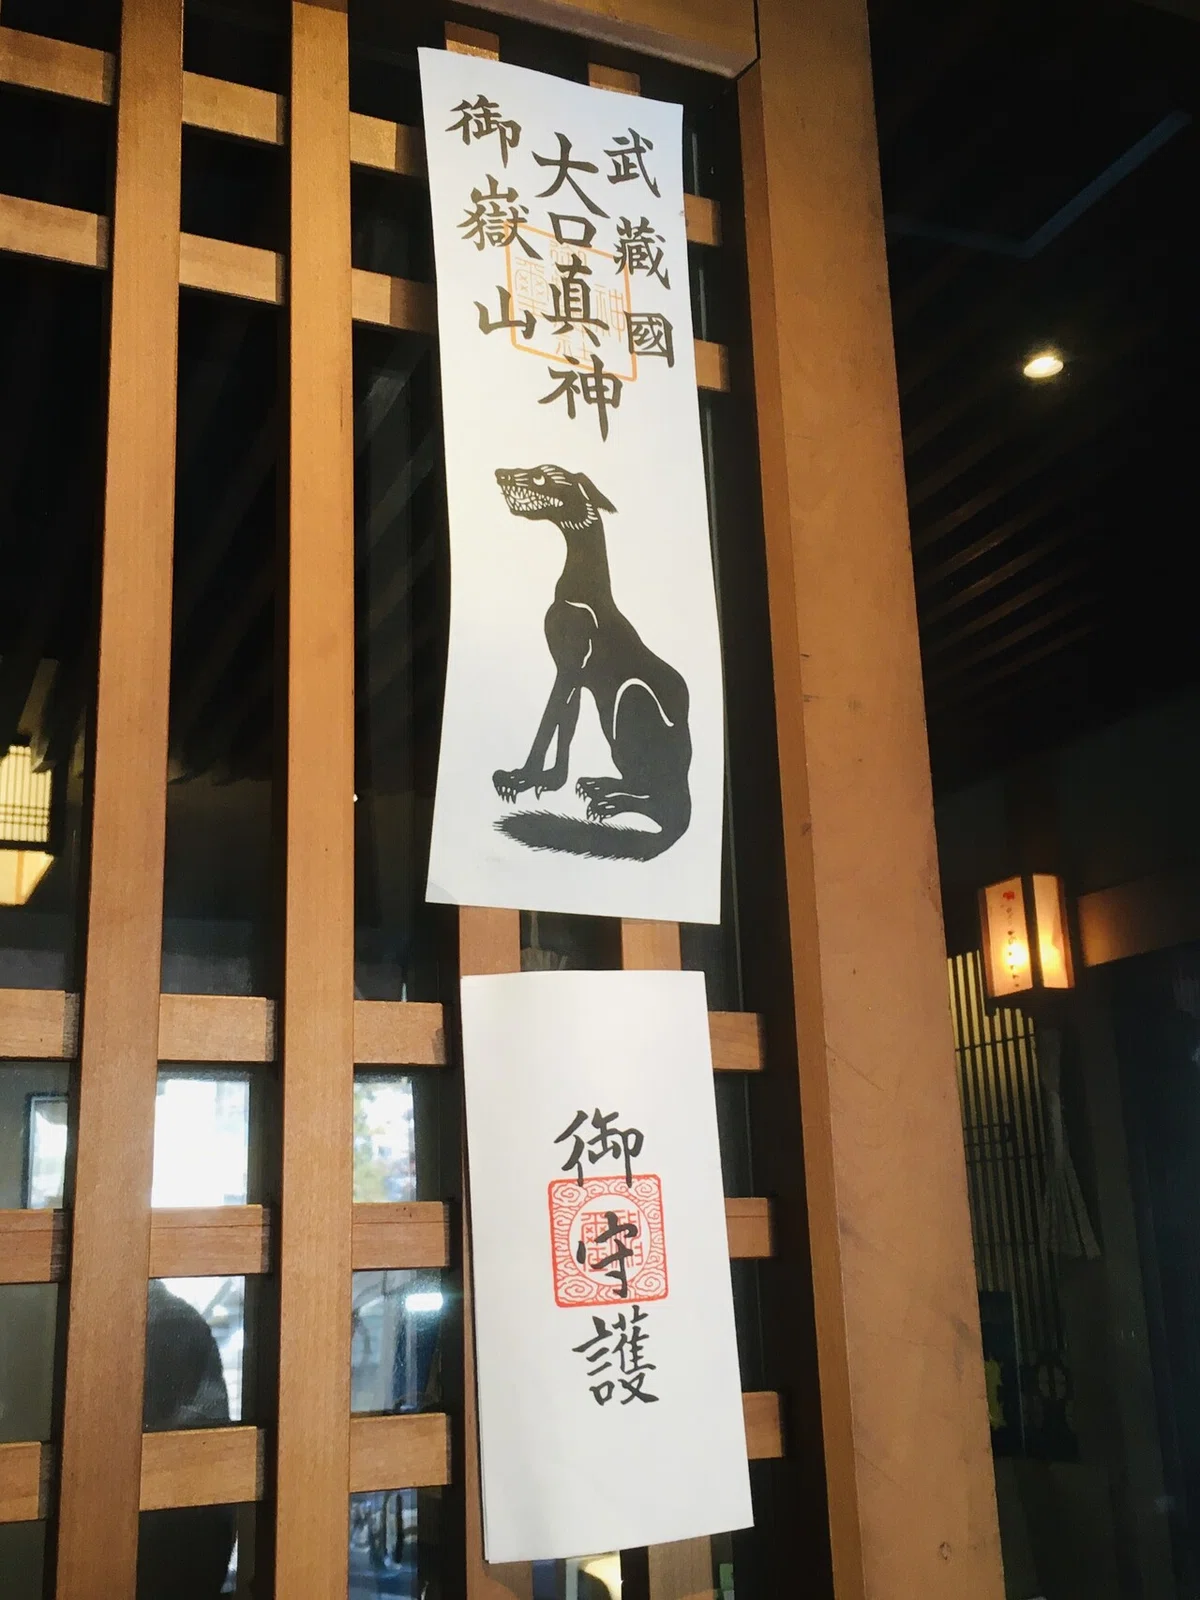 武藏國
大口真神
御嶽山
御守護